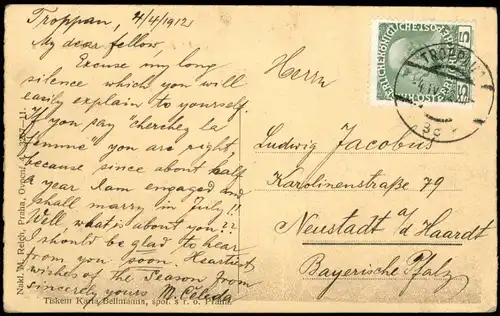 Troppau, 4/4/1912
My dear fellow,
Excuse my long
silence which you will
easily explain to yourself.
If you say "cherchez la
femme" you are right,
because since about half
a year I am engaged and
shall marry in July!!
Well what is about you??
I should be glad to hear
from you soon. Heartiest
wishes of the Season from
sincerely yours M. Čeleda
Nakl. M. Reich, Praha, Ovocní
Tiskem Karla Bellmanna, spol. s r. o. Praha.
Herrn
Ludwig Jacobus
Karolinenstraße 79
Neustadt a/d Haardt
Bayerische Pfalz
5
TROPPAU